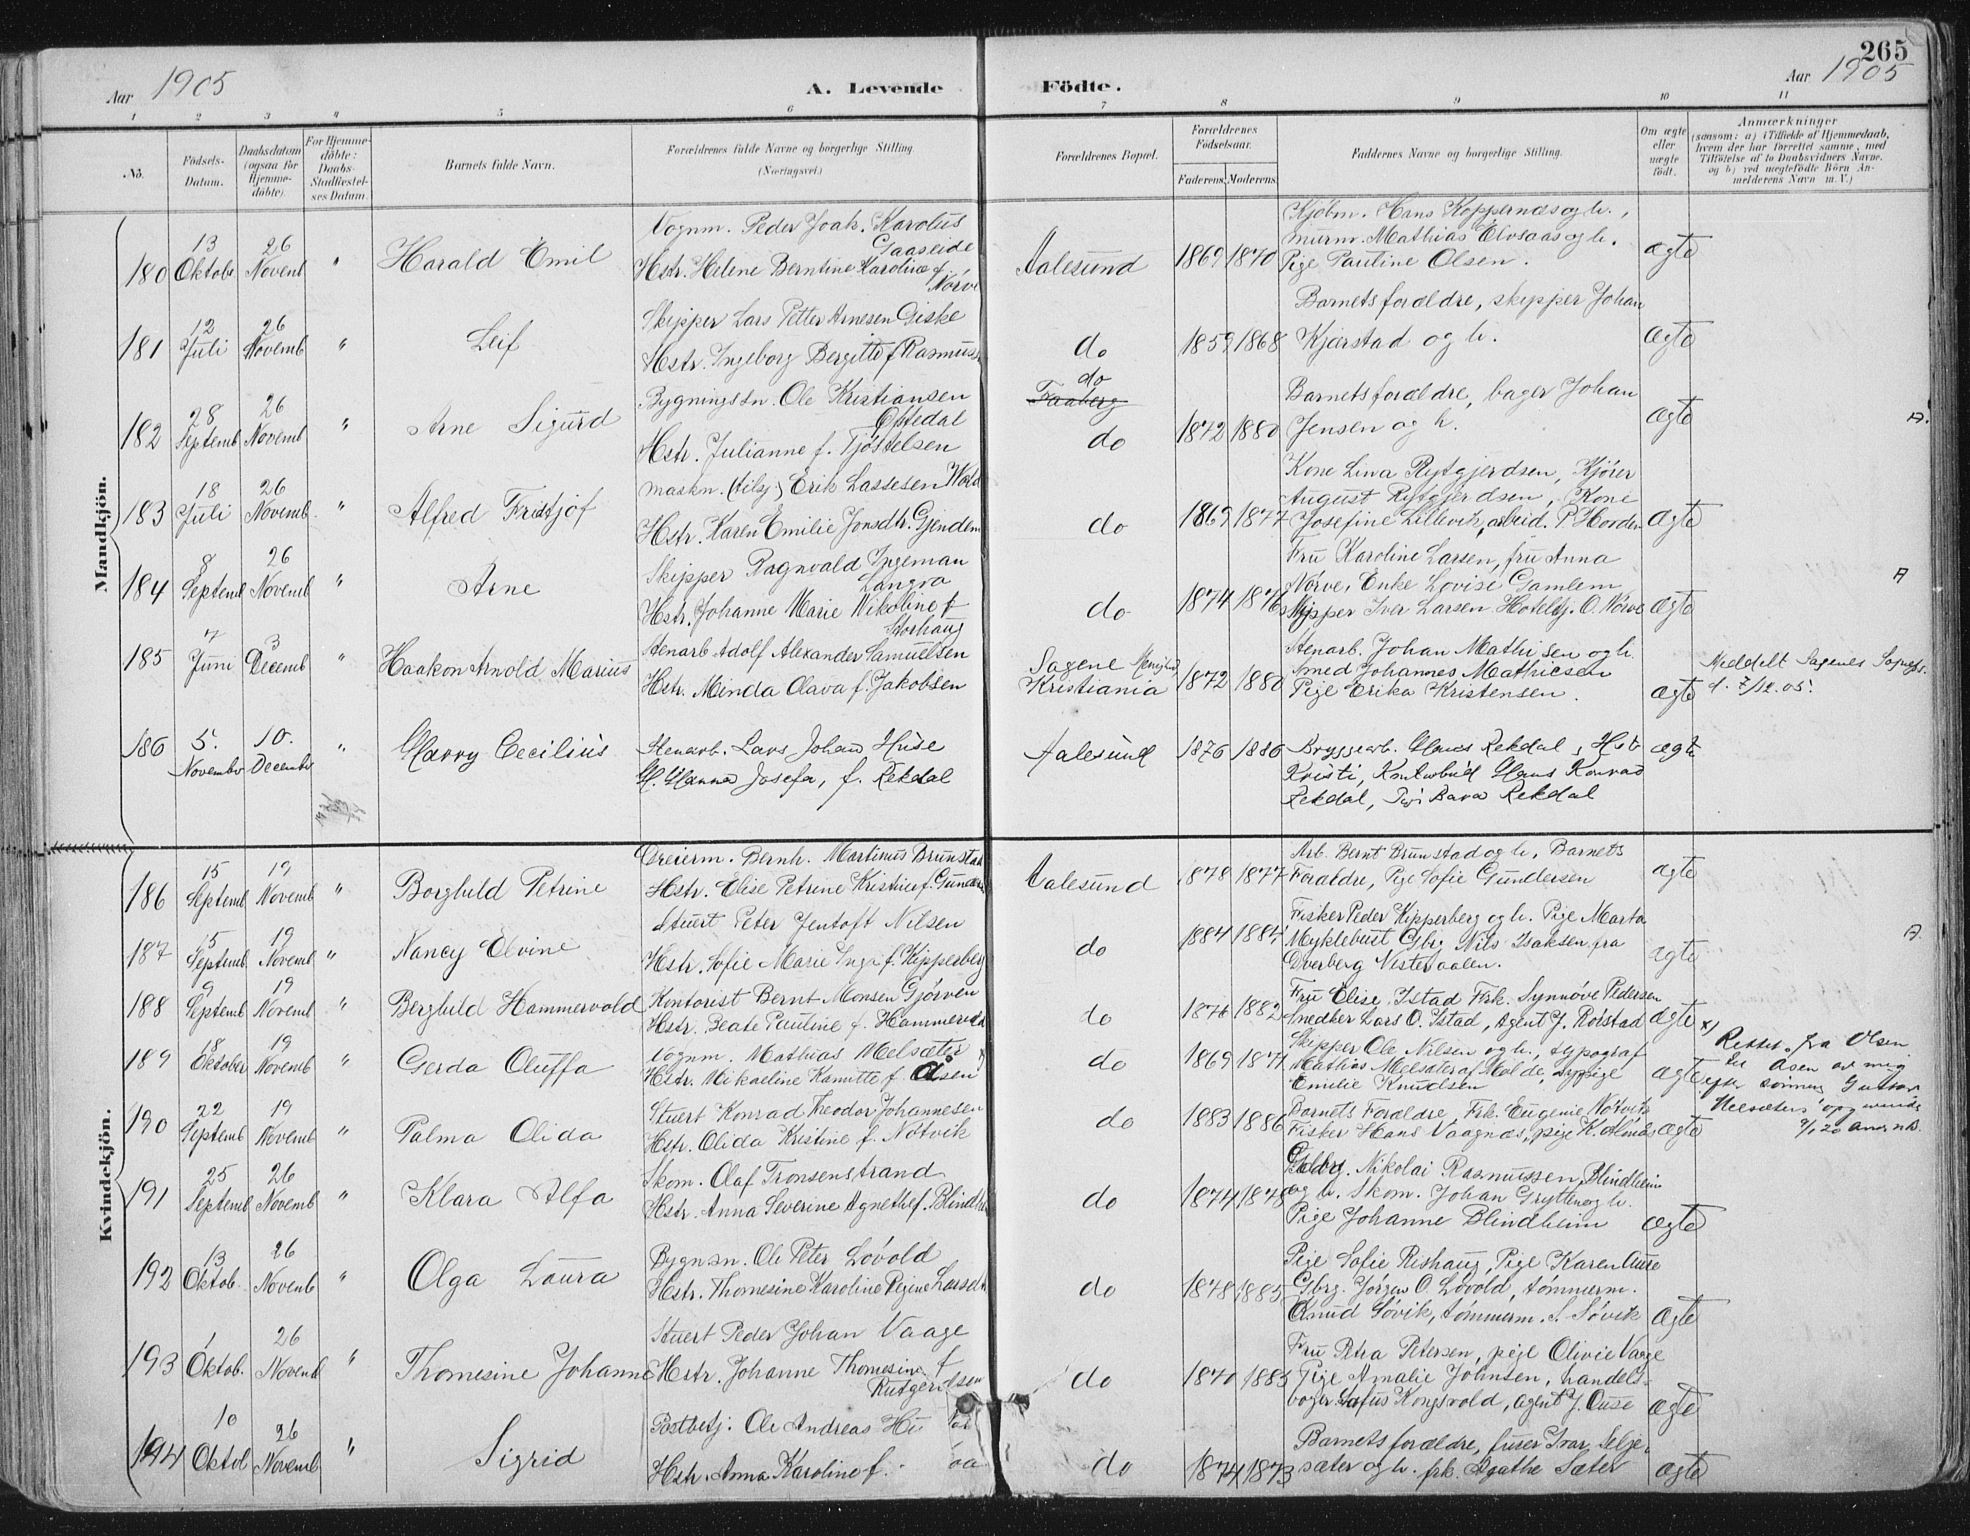 265
Aar 1905
A. Levende Födte.
Aar 1905
1 2 3 4 5 6 7 8 9 10 11
No.
Födsels-
Datum.
Daabsdatum
(ogsaa for
Hjemme-
döbte).
For Hjemme-
döbte:
Daabs-
Stadfæstel-
ses Datum.
Barnets fulde Navn.
Forældrenes fulde Navne og borgerlige Stilling.
(Næringsvei.)
Forældrenes Bopæl.
Forældrenes
Födselsaar.
Faderens. Moderens.
Faddernes Navne og borgerlige Stilling.
Om ægte
eller
uægte
födt.
Anmærkninger
(saasom: a) i Tilfælde af Hjemmedaab,
hvem der har forrettet samme, med
Tilföielse af to Daabsvidners Navne.
og b) ved uægtefödte Börn An-
melderens Navn m. V.)
Mandkjön.
180 13 Oktobr 26 Novemb " Harald Emil
Vognm. Peder Joak. Karolus
Gaaseide
Hstr. Helene Berntine Karoline f.
Nörve
Aalesund 1869 1870
Kjöbm. Hans Koppernæs og h.,
murm. Mathias Elvsaas og h.
Pige Pauline Olsen. ægte
181 12 Juli 26 Novemb " Leif
Skipper Lars Petter Arnesen Giske
Hstr. Ingeborg Bergitte f. Rasmuss
do 1859 1868
Barnets forældre, skipper Johan
Kjærstad og h. ægte
182 28 Septemb 26 Novemb " Arne Sigurd
Bygningssn. Ole Kristiansen
Opstedal
Hstr. Julianne f. Tjöstelsen
do
Faaberg
do 1872 1880
Barnets forældre, bager Johan
Jensen og h. ægte A.
183 18 Juli 26 Novemb. " Alfred Fridtjof
maskn. (tilsj) Erik Lassesen Wold
Hstr. Karen Emilie Jonsdtr. Gjendem
do 1869 1877
Kone Lina Rytgjerdsen, Kjörer
August Rytgjerdsen, Kone
Josefine Lillevik, arbeid. P. Horden ægte
184 8 Septemb 26 Novemb " Arne
Skipper Ragnvald Ingeman
Langva
Hstr. Johanne Marie Nikoline f.
Storhaug
do 1874 1876
Fru Karoline Larsen, fru Anna
Nörve, Enke Lovise Gamlem
Skipper Iver Larsen Hotelbj. O. Nörve ægte A
185 7 Juni 3 Decemb " Haakon Arnold Marius
Stenarb. Adolf Alexander Samuelsen
Hstr. Minda Olava f. Jakobsen
Sagene Menighed
Kristiania 1872 1880
Stenarb. Johan Mathisen og h.
Smed Johannes Mathiesen
Pige Erika Kristensen. ægte
Meddelt Sagenes Sognepr.
d. 7/12. 05.
186 5. November 10. December " Harry Cecilius
Stenarb. Lars Johan Huse
H. Hanna Josefa, f. Rekdal
Aalesund 1876 1886
Bryggearb. Hans Rekdal, Hst.
Kristi, Kontorbud Hans Konrad
Rekdal, Pige Bara Rekdal ægte
Kvindekjön.
186 15 Septemb 19 Novemb " Borghild Petrine
Dreierm. Bernh. Martinus Brunstad
Hstr. Elise Petrine Kristine f. Gunders
Aalesund 1878 1877
Arb. Bernt Brunstad og h. Barnets
Forældre, Pige Sofie Gundersen ægte
187 15 Septemb 19 Novemb " Nancy Elvine
Stuert Peter Jentoft Nilsen
Hstr. Sofie Marie Inga f. Kipperberg
do 1884 1884
Fisker Peder Kipperberg og h. Pige Marta
Myklebust Gbr. Nils Isaksen fra
Overberg Vesteraalen. ægte A.
188 9 Septemb 19 Novemb " Berghild Hammervold
Kontorist Bernt Monsen Gjörven
Hstr. Beate Pauline f. Hammervold
do 1876 1882
Fru Elise Istad Frk. Synnöve Pedersen
Snedker Lars O. Istad, Agent J. Roistad ægte
189 18 Oktober 19 Novemb " Gerda Oluffa
Vognm. Mathias Melsæter x)
Hstr. Mikaeline Kamitte f. Aasen
do 1869 1871
Skipper Ole Nilsen og h., typograf
Mathias Melsæter af Molde, sypige
Emilie Knudsen ægte
x) Rettet fra Olsen
til Åsen av mig
efter sönnen Gustav
Melsæters opgivende
190 22 Septemb 19 Novemb " Palma Olida
Stuert Konrad Theodor Johannesen
Hstr. Olida Kristine f. Nötvik
do 1883 1886
Barnets Forældre, Frk. Eugenie Nötvik
Fisker Hans Vaagnæs, pige K. Almås ægte
191 25 Septemb 26 Novemb " Klara Alfa
Skom. Olaf Tronsenstrand
Hstr. Anna Severine Agnethe f. Blindheim
do 1874 1878
Gbr. Nikolai Rasmussen Blindheim
og h. Skom. Johan Grytten og h.
Pige Johanne Blindheim ægte
192 13 Oktob. 26 Novemb " Olga Laura
Bygnsn. Ole Peter Lövold
Hstr. Thomesine Karoline Regine Lassen
do 1878 1885
Pige Sofie Rishaug, Pige Karen Aure
Gbrg. Jörgen O. Lövold, tömmerm.
Knud Sövik, tömmerm. S. Sövik ægte
193 1 Oktob. 26 Novemb " Thomesine Johanne
Stuert Peder Johan Vaage
Hstr. Johanne Thomesine f.
Rutgerdsen
do 1870 1883
Fru Petra Petersen, pige Olivie Vaage
Pige Amalie Johnsen, handels-
bogh. Rasmus Kongsvold, agent J. Aure ægte
194 10 Oktob 26 Novemb " Sigrid
Postbetj. Ole Andreas
Hstr. Anna Karoline f.
do 1874 1873
Barnets forældre, furer Ivar Selje-
sæter og h. frk. Agathe Sæter ægte